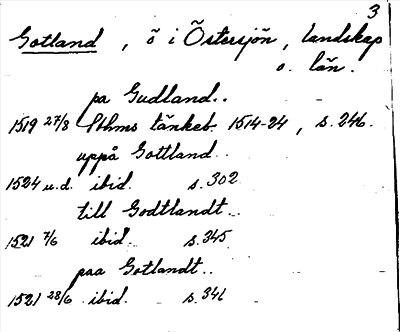 3
Gotland, ö i Östersjön, landskap
o. län.
pa Gudland..
1519 27/8 Sthms tänkeb. 1514-24, s. 246.
uppå Gottland..
1524 u.d. ibid. s. 302
till Godtlandt..
1521 7/6 ibid. s. 345
paa Gotlandt..
1521 28/6 ibid. s. 341